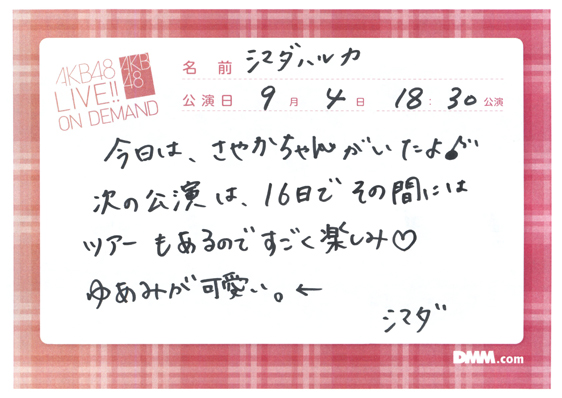 AKB48
LIVE!!
ON DEMAND
AKB
48
名 前 シマダハルカ
公演日 9月 4日 18:30公演
今日は、さやかちゃんがいたよ♪
次の公演は、16日でその間には
ツアーもあるのですごく楽しみ♡
ゆあみが可愛い。←
シマダ
DMM.com